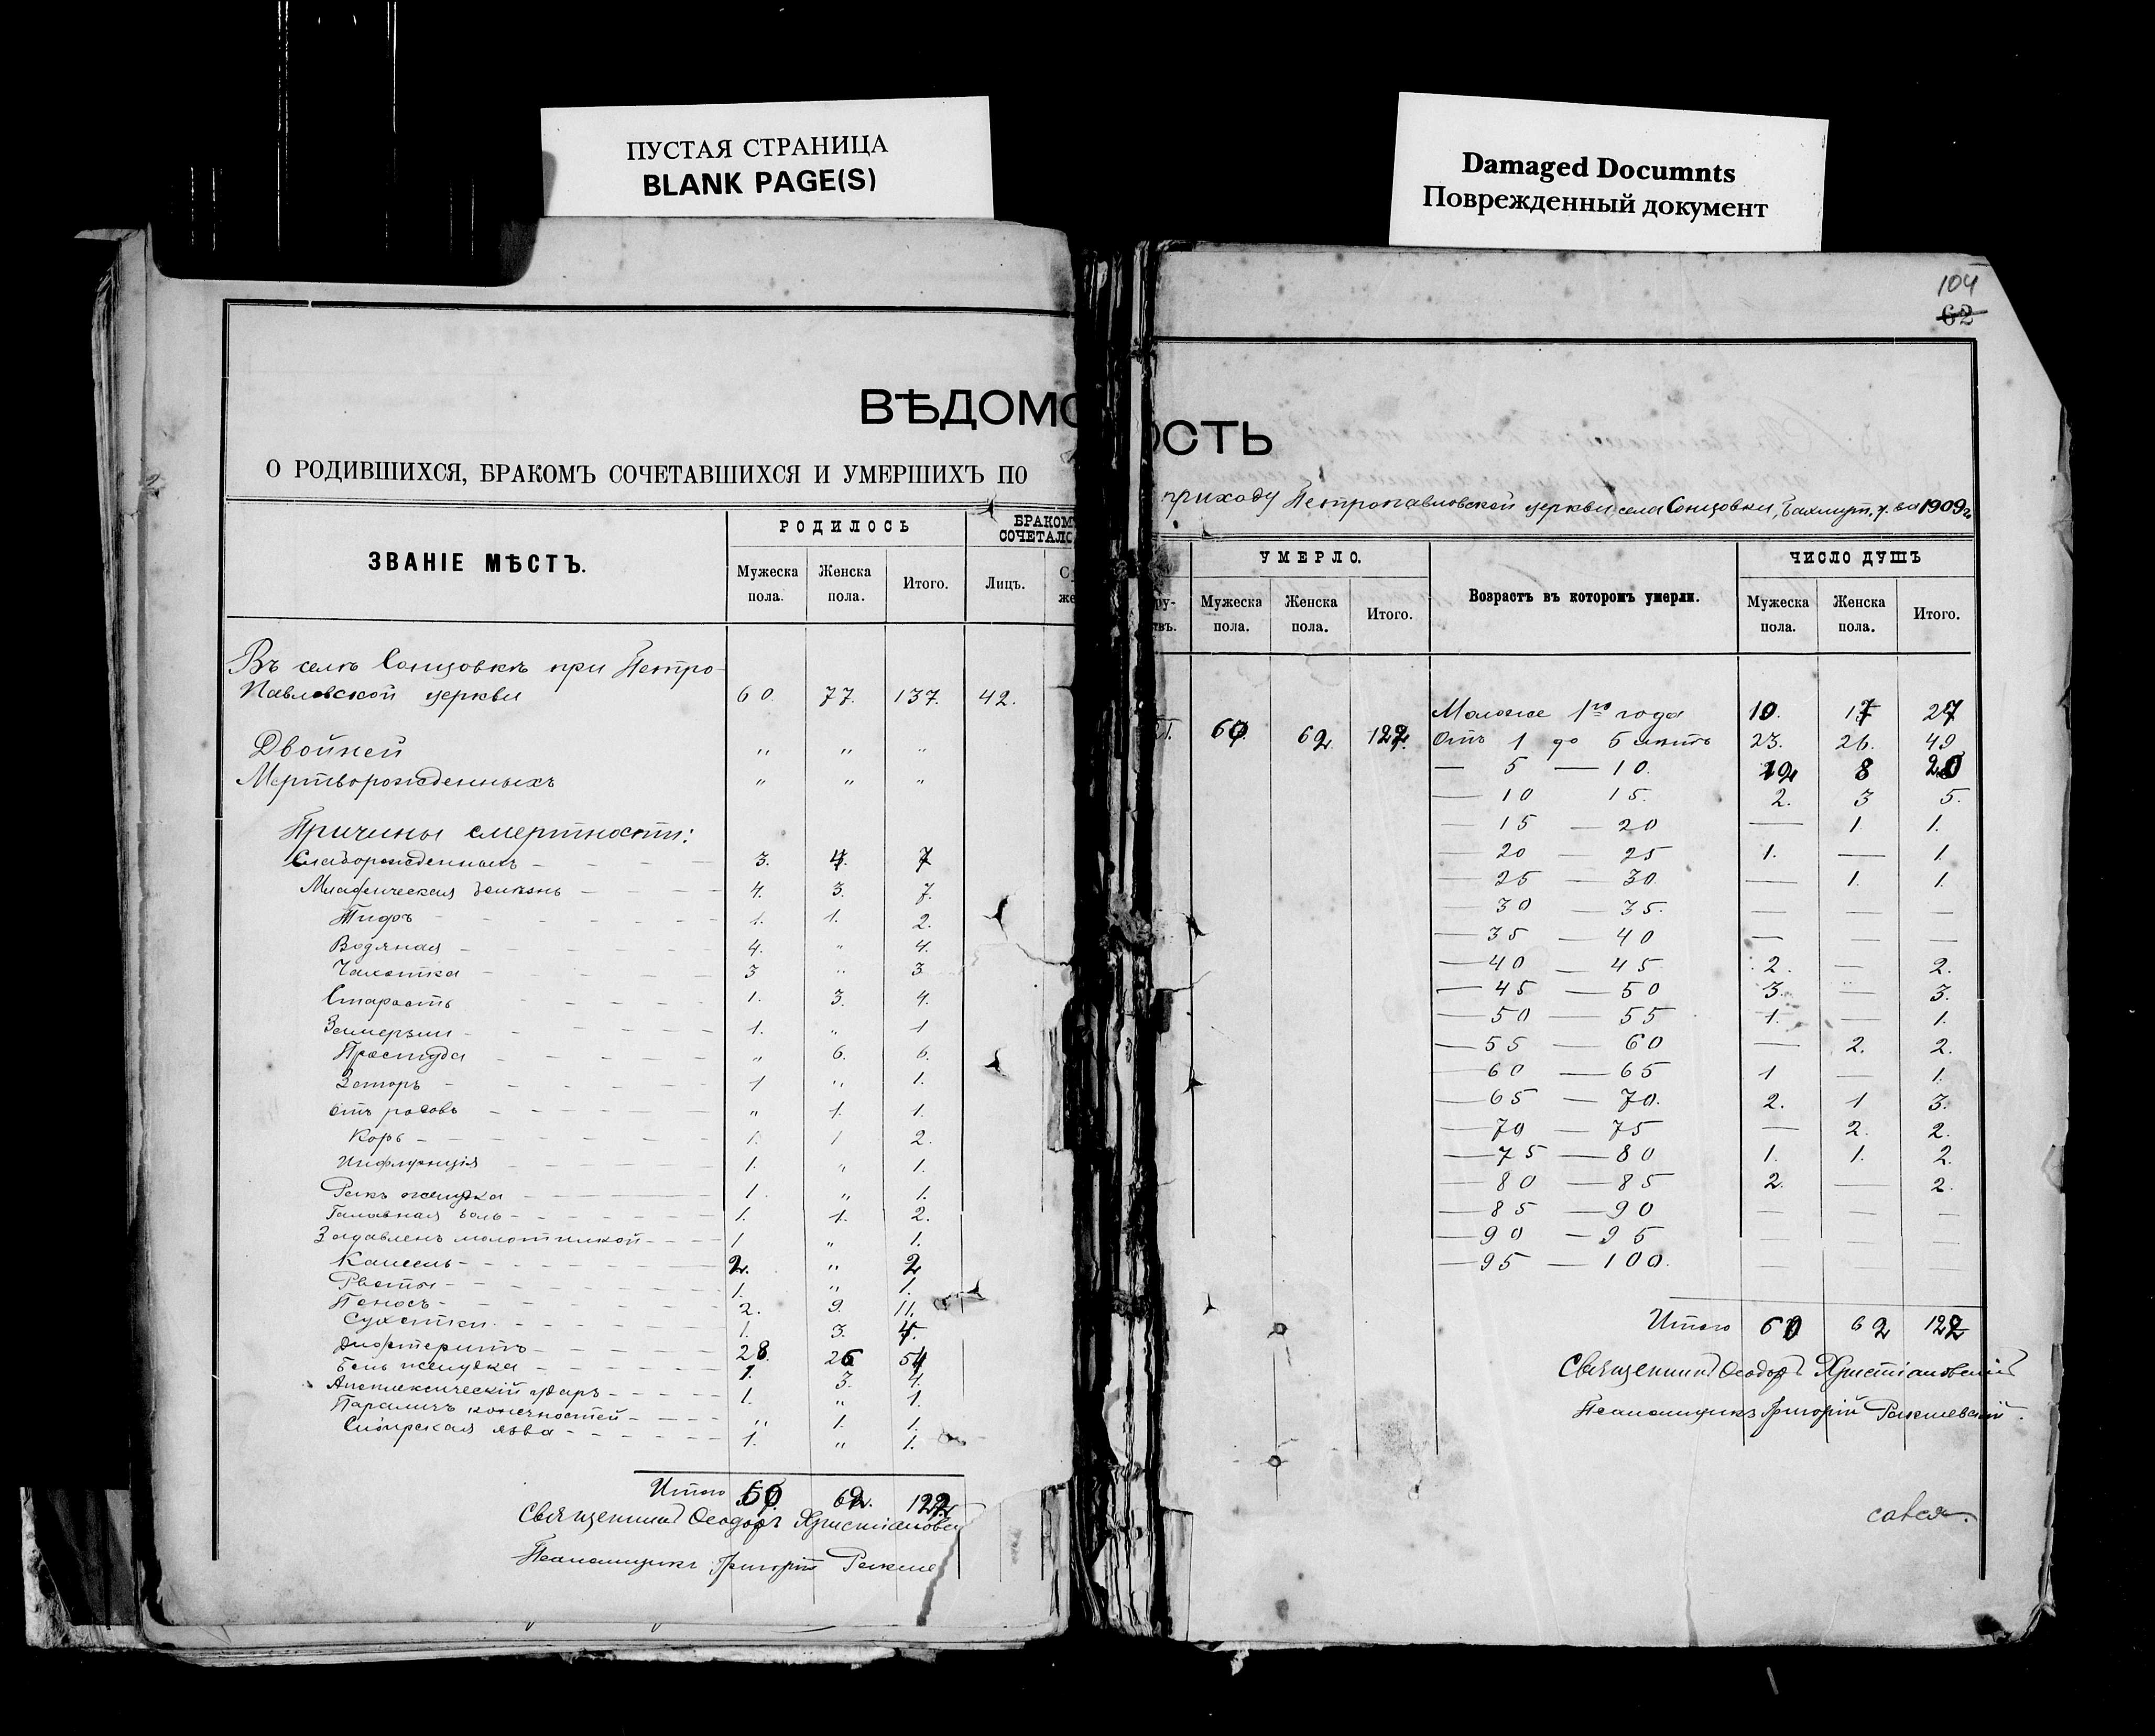 ПУСТАЯ СТРАНИЦА
BLANK PAGE(S)
Damaged Documnts
Поврежденный документ
104
62
ВѢДОМО
О РОДИВШИХСЯ, БРАКОМЪ СОЧЕТАВШИХСЯ И УМЕРШИХЪ ПО
ЗВАНІЕ МѢСТЪ.
РОДИЛОСЬ
БРАКОМ
СОЧЕТАЛО
Мужеска пола. Женска пола. Итого. Лицъ.
Въ селѣ Солнцовкѣ при Петро-
Павловской церкви 60. 77. 137. 42.
Двойней " " "
Мертворожденныхъ " " "
Причины смертности:
Слаборожденныхъ 3. 4. 7
Младенческая болѣзнь 4. 3. 7.
Тифъ 1. 1. 2.
Водяная 4. " 4.
Чахотка 3 " 3
Старость 1. 3. 4.
Замерзли 1. " 1
Простуда " 6. 6.
Запоръ 1 " 1.
Отъ родовъ " 1. 1.
Корь 1. 1 2.
Инфлуэнція 1. " 1.
Ракъ желудка 1. " 1.
Головная боль 1. 1. 2.
Задавленъ молотилкой 1 " 1.
Кашель 2. " 2
Рвота 1. " 1.
Поносъ 2. 9. 11.
Сухотка 1. 3. 4.
Дифтеритъ 28. 26 54
Боль желудка 1. 3. 4.
Апоплексическій ударъ 1. " 1.
Параличъ конечностей " 1. 1.
Сибирская язва 1. " 1.
Итого 60 62. 122
Священникъ Ѳеодоръ Христіановск
Псаломщикъ Григорій
ОСТЬ
приходу Петропавловской церкви села Солнцовки, Бахмут. у. за 1909 г.
УМЕРЛО.
Возрастъ въ которомъ умерли.
ЧИСЛО ДУШЪ
Мужеска пола. Женска пола. Итого. Мужеска пола. Женска пола. Итого.
60 62 122.
Моложе 1го года 10. 17 27
Отъ 1 до 5 лѣтъ 23. 26. 49
— 5 — 10. 12 8 20
— 10 15. 2. 3 5.
— 15 — 20 — 1. 1.
— 20 — 25 1. — 1.
— 25 — 30. — 1. 1.
— 30 — 35. — — —
— 35 — 40 — — —
— 40 — 45 2. — 2.
— 45 — 50 3. — 3.
— 50 — 55 1. — 1.
— 55 — 60 — 2. 2.
— 60 — 65 1 — 1.
— 65 — 70. 2. 1 3.
— 70 — 75 — 2. 2.
— 75 — 80 1. 1. 2.
— 80 — 85 2. — 2.
— 85 — 90 — — —
— 90 — 95 — — —
— 95 — 100. — — —
Итого 60 62 122
Священникъ Ѳеодоръ Христіановскій
Псаломщикъ Григорій